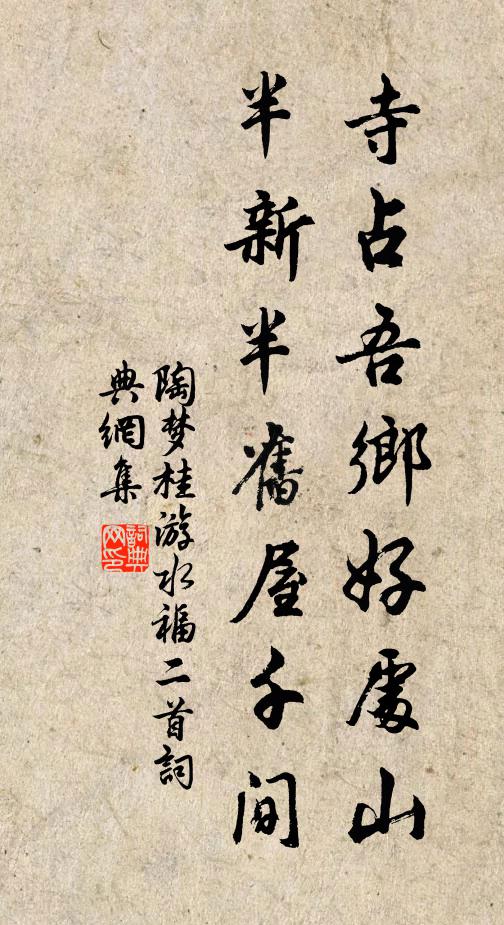 寺占吾鄉好處山
半新半舊屋千间
陶梦桂游水福二首詞
典網集
詞典
网印